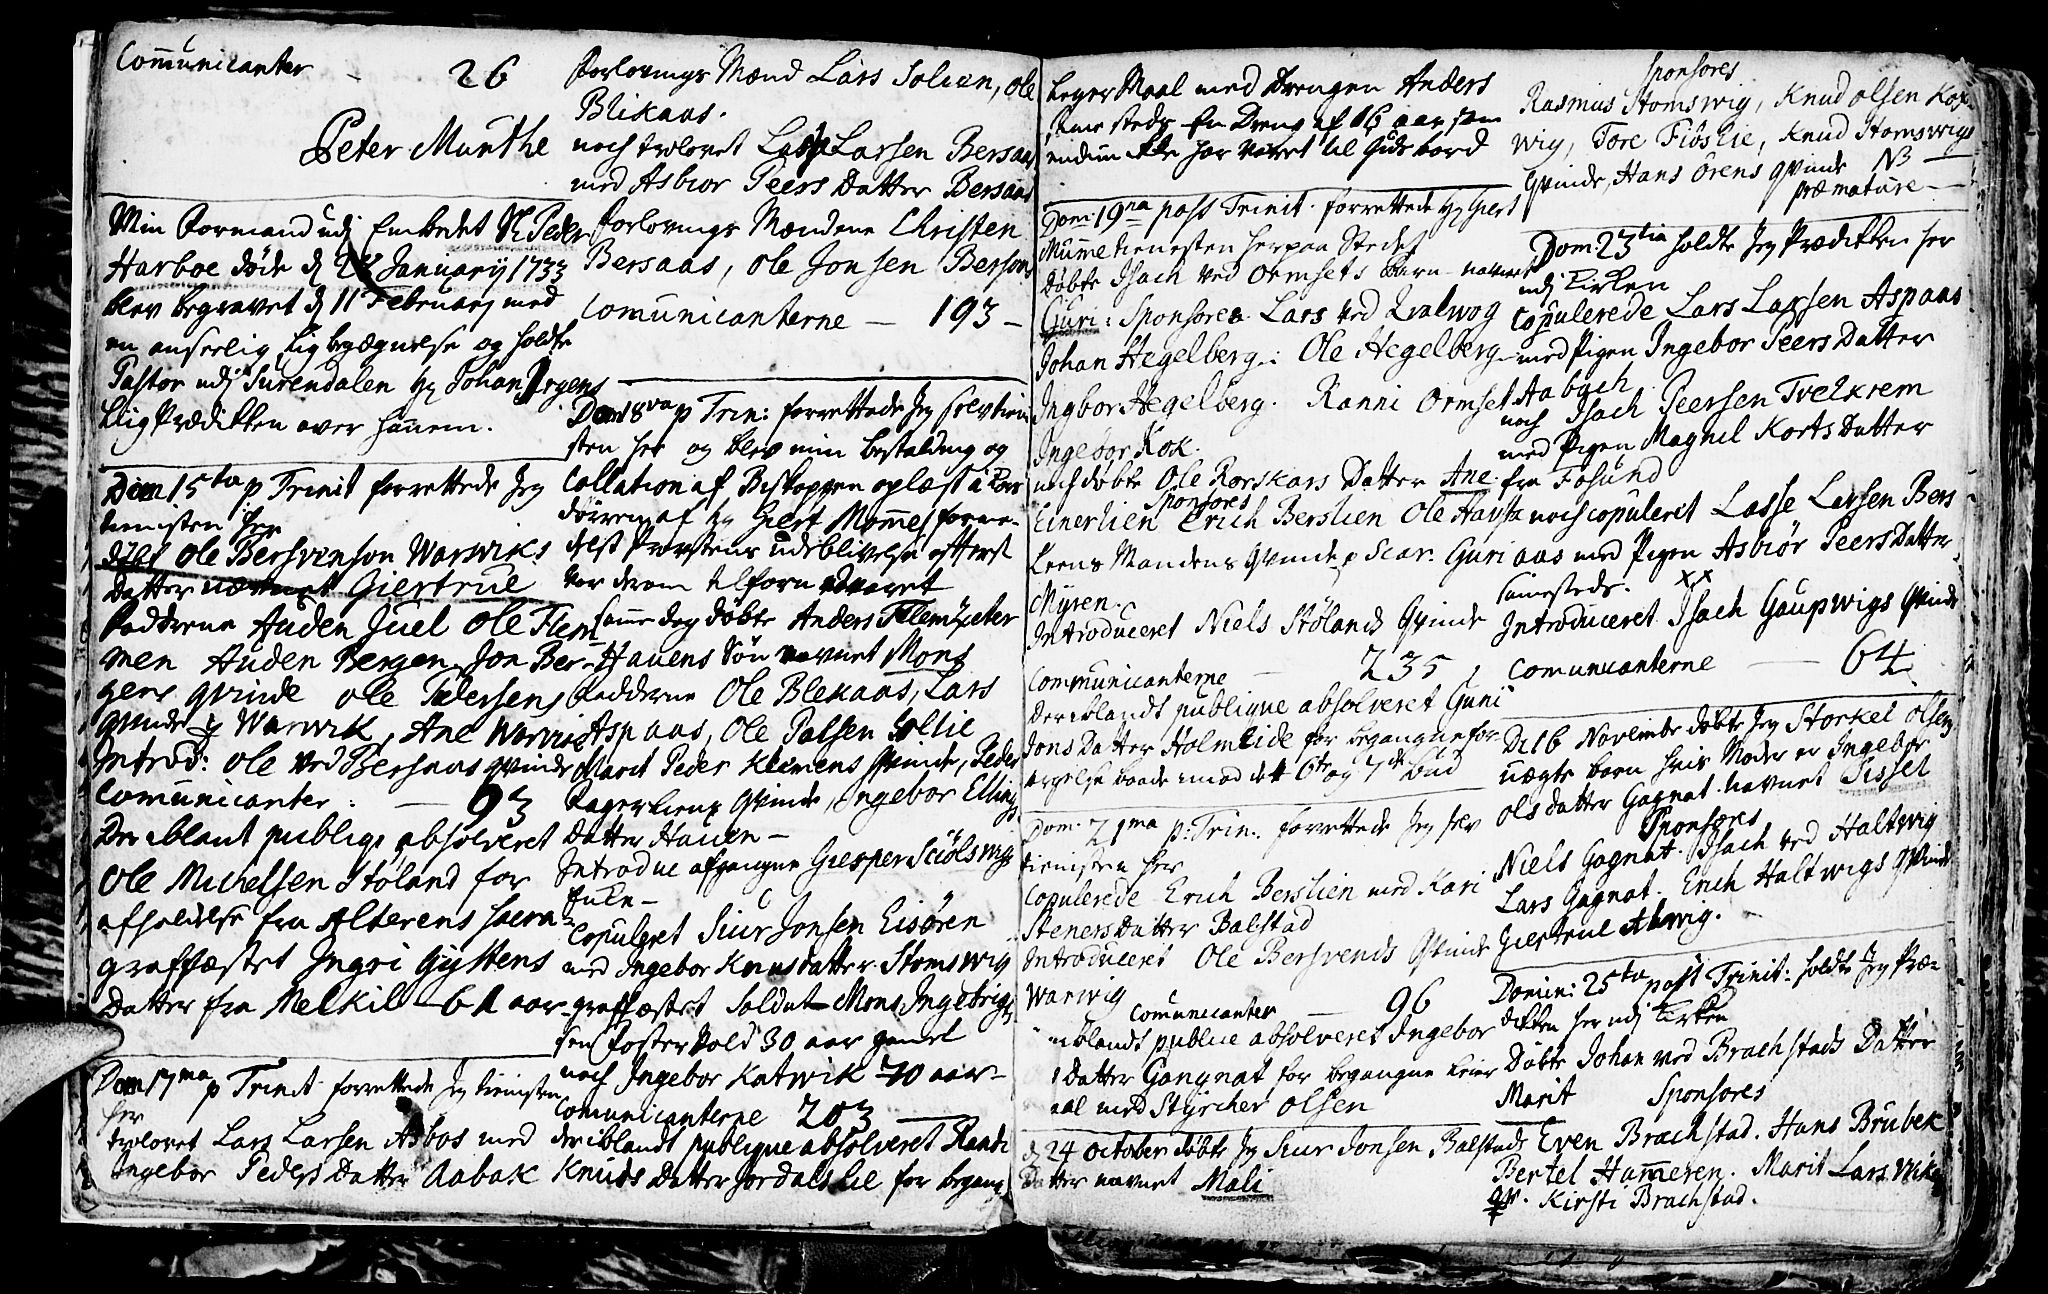 Communicanter - 26
Peter Munthe
Min Formand udj Embedet Hr Peder
Harboe døde d 28 January 1733
blev begravet d 11 February med
en anseelig Lig begængnelse og holdte
Pastor udj Surendalen Hr Johan Irgens
Liig Prædikken over hannem.
Dom 15ta p Trinit forrettede Jeg
tienisten her
døbt Ole Bersvenson Warwiks
Datter nævnet Giertrue
Fadderne Auden Juel Ole Flem
men Auden Bergen Jon Ber-
gens qvinde Ole Pedersens
qvinde Warwik, Ane Warvik
Introd: Ole ved Bersaas qvinde
Communicanter: — 93
Der iblant publiqe absolveret
Ole Michelsen Støland for
afholdelse fra Alterens sacra-
graffæstet Ingri Gystens
Datter fra Melkil - 61 aar
Dom 17ma p Trinit forrettede Jeg tienisten
her
trolovet Lars Larsen Asbos med
Ingebor Peders Datter Aabak
Forlovings Mænd Lars Solien, Ole
Blikaas.
noch trolovet Lasse Larsen Bersaas
med Asbior Peers Datter Bersaas
Forlovings Mændene Christen
Bersaas, Ole Jonsen Bersaas
Comunicanterne — 193 —
Dom 18va p Trin: forrettede Jeg sielv tieni
sten her og blev min bestalding og
Collation af Biskoppen oplæst i Kor
dørren af Hr Giert Mømme forme-
delst Provstens udeblivelse efftersom
var derom tilforn advaret
samme dag døbte Anders Flemsæter
Hauens Søn navnet Mons
Fadderne Ole Blekaas, Lars
Aspaas, Ole Palsen Sollie
Marit Peder Klemens Qvinde, Peder
Fagerliens Qvinde, Ingebor Ellings
Datter Hauen —
Introduc afgangne Giesper Sciølswigs
Enke —
Copuleret Siur Jonsen Eisøren
med Ingebor Knuds datter Stomswig
graffæstet Soldat Mons Ingebrigt
sen Fostervold 30 aar gamel
noch Ingebor Katwik 70 aar —
Comunicanterne 203 —
der iblandt publique absolveret Randi
Knuds Datter Jordalslie for begang
Leger Maal med Drengen Anders
samesteds En Dreng af 16 aar som
endnu ikke har været til Guds bord
Dom: 19na post Trinit. forrettede Hr Giert
Mumme tienesten herpaa Stedet
døbte Isach ved Ormsets barn navnet
Guri: Sponsores Lars ved Qvalwog
Johan Hegelberg: Ole Hegelberg
Ingbor Hegelberg. Ranni Ormset
Ingebor Kok.
noch døbte Ole Rorskars Datter Ane
Sponsores
Einerlien Erich Berslien Ole Hausta
Leens Mandens Qvinde Scar. Guri
Myren.
Introduceret Niels Støland Qvinde
Communicanterne — 235
Der iblandt publique absolveret Guni
Jons Datter Holmeide for begangne for
argelse baade imod det 6te og 7de bud
Dom. 21ma p: Trin: forrettede Jeg selv
tienisten her
Copulerede Erich Berslien med Kari
Steners Datter Balstad
Introduceret Ole Bersvends Qvinde
Warwig
Comunicanter — 96
iblandt publice absolveret Ingebor
Datter Gangnat for begangne Leier
aal med Styrcher Olsen
d 24 October døbte Jeg Siur Jonsen Balstads
Datter navnet Mali
Sponsores
Rasmus Stomswig, Knud Olsen Kox
wig, Tore Fiøslie, Knud Stomswigs
Qvinde, Hans Ørens qvinde NB
præmature —
Dom: 23tia holdte Jeg Prædikken her
udj Kirken
Copulerede Lars Larsen Aspaas
med Pigen Ingebor Peers Datter
Aabach
noch Isach Peersen Tvelkrem
med Pigen Magnil Korts Datter
fra Fosund
noch copuleret Lasse Larsen Bers
aas med Pigen Asbiør Peers Datter
samesteds. xx
Introduceret Isach Gaupwigs Qvinde
Comunicanterne — 64
D. 16 Novembr døbte Jeg Storkel Olsens
uægte barn hvis Moder er Ingebor
Olsdatter Gagnat navnet Sissel
Sponsores
Niels Gagnat. Isach ved Haltwig
Lars Gagnat. Erich Haltwigs Qvinde
Giertrue Alwig.
Domin: 25ta post Trinit: holdte Jeg Præ-
dikken her udj Kirken
Døbte Johan ved Brachstads Datter
Marit Sponsores
Even Brachstad. Hans Brubek
Bertel Hammeren. Marit Lars Wiks
qv. Kirsti Brachstad.